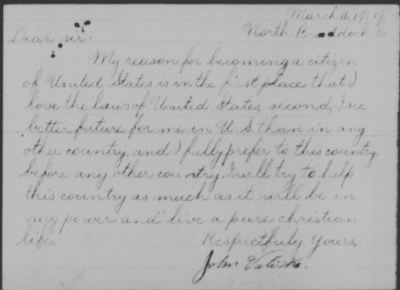 March 16, 19
North Braddock, Pa
Dear sir:
My reason for becoming a citizen
of United States is in the first place that I
love the laws of United States second, I see
better future for me in U.S. than in any
other country and I fully prefer to this country
before any other country. I will try to help
this country as much as it will be in
my power and live a pure christian
life.
Respectfully Yours,
John